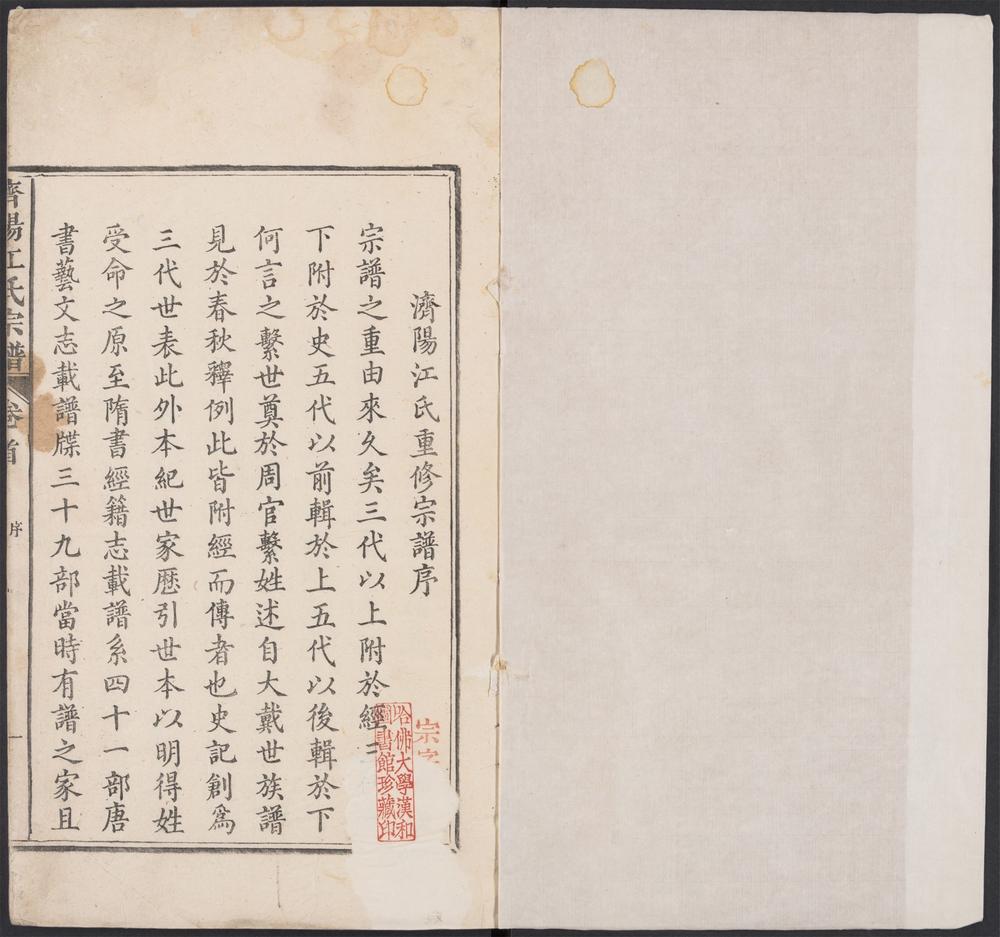 濟陽江氏重修宗譜序
宗譜之重由來久矣三代以上附於經
下附於史五代以前輯於上五代以後輯於下
何言之繫世奠於周官繫姓述自大戴世族譜
見於春秋釋例此皆附經而傳者也史記創爲
三代世表此外本紀世家歷引世本以明得姓
受命之原至隋書經籍志載譜系四十一部唐
書藝文志載譜牒三十九部當時有譜之家且
濟陽江氏宗譜
卷首
序
宗
哈佛大學漢和
圖書館珍藏印